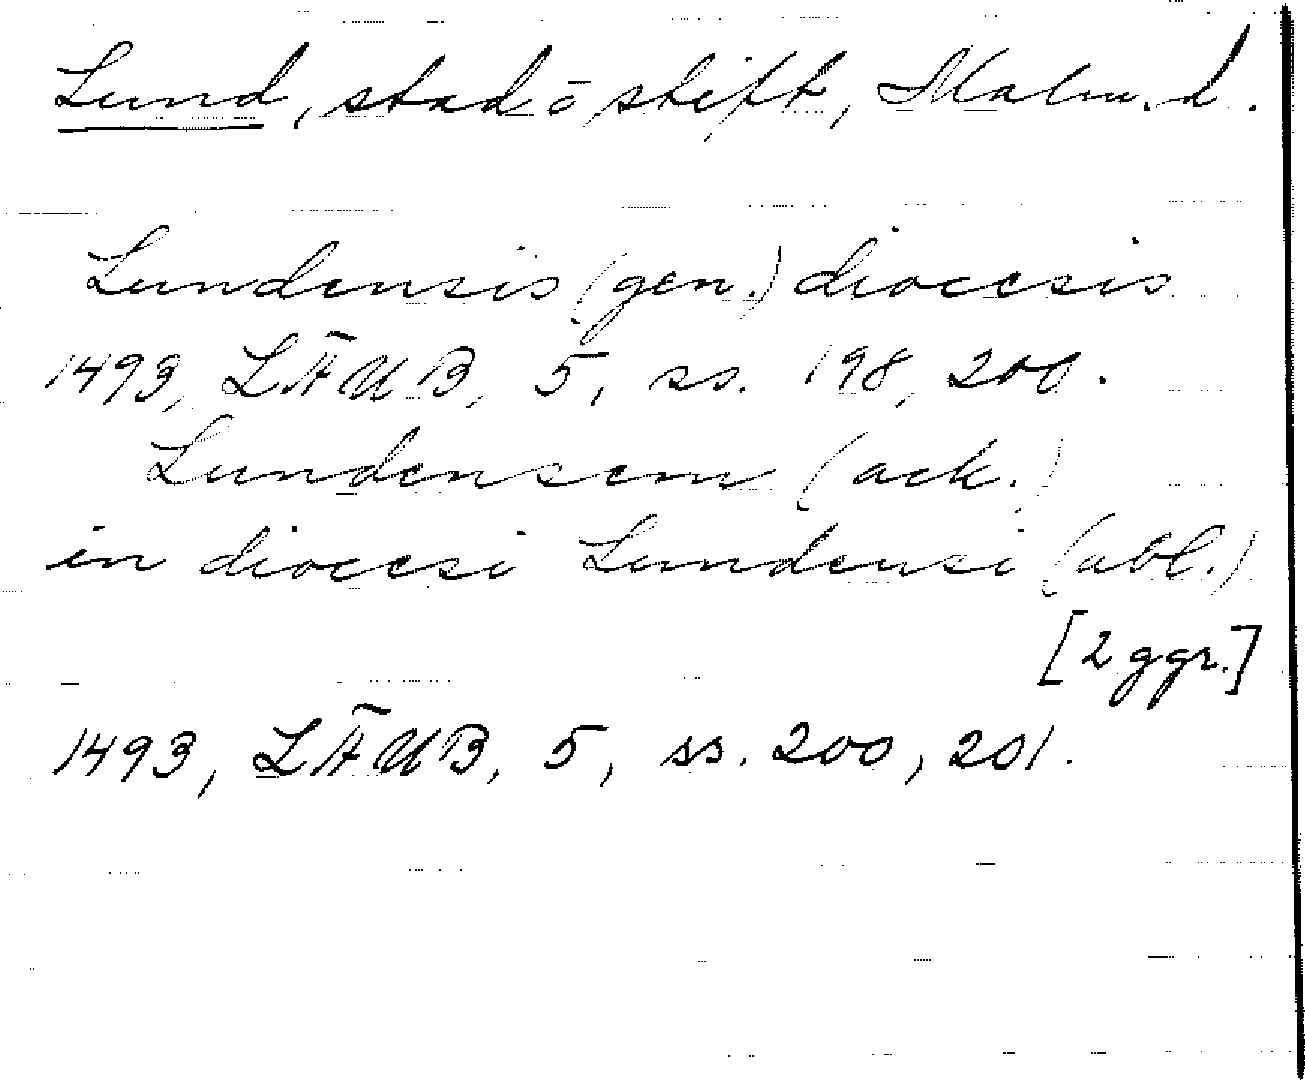 Lund, stad o stift, Malm. l.
Lundensis (gen.) diocesis
1493, LÄUB, 5, ss. 198, 200.
Lundensem (ack.)
in diocesi Lundensi (abl.)
[2 ggr.]
1493, LÄUB, 5, ss. 200, 201.